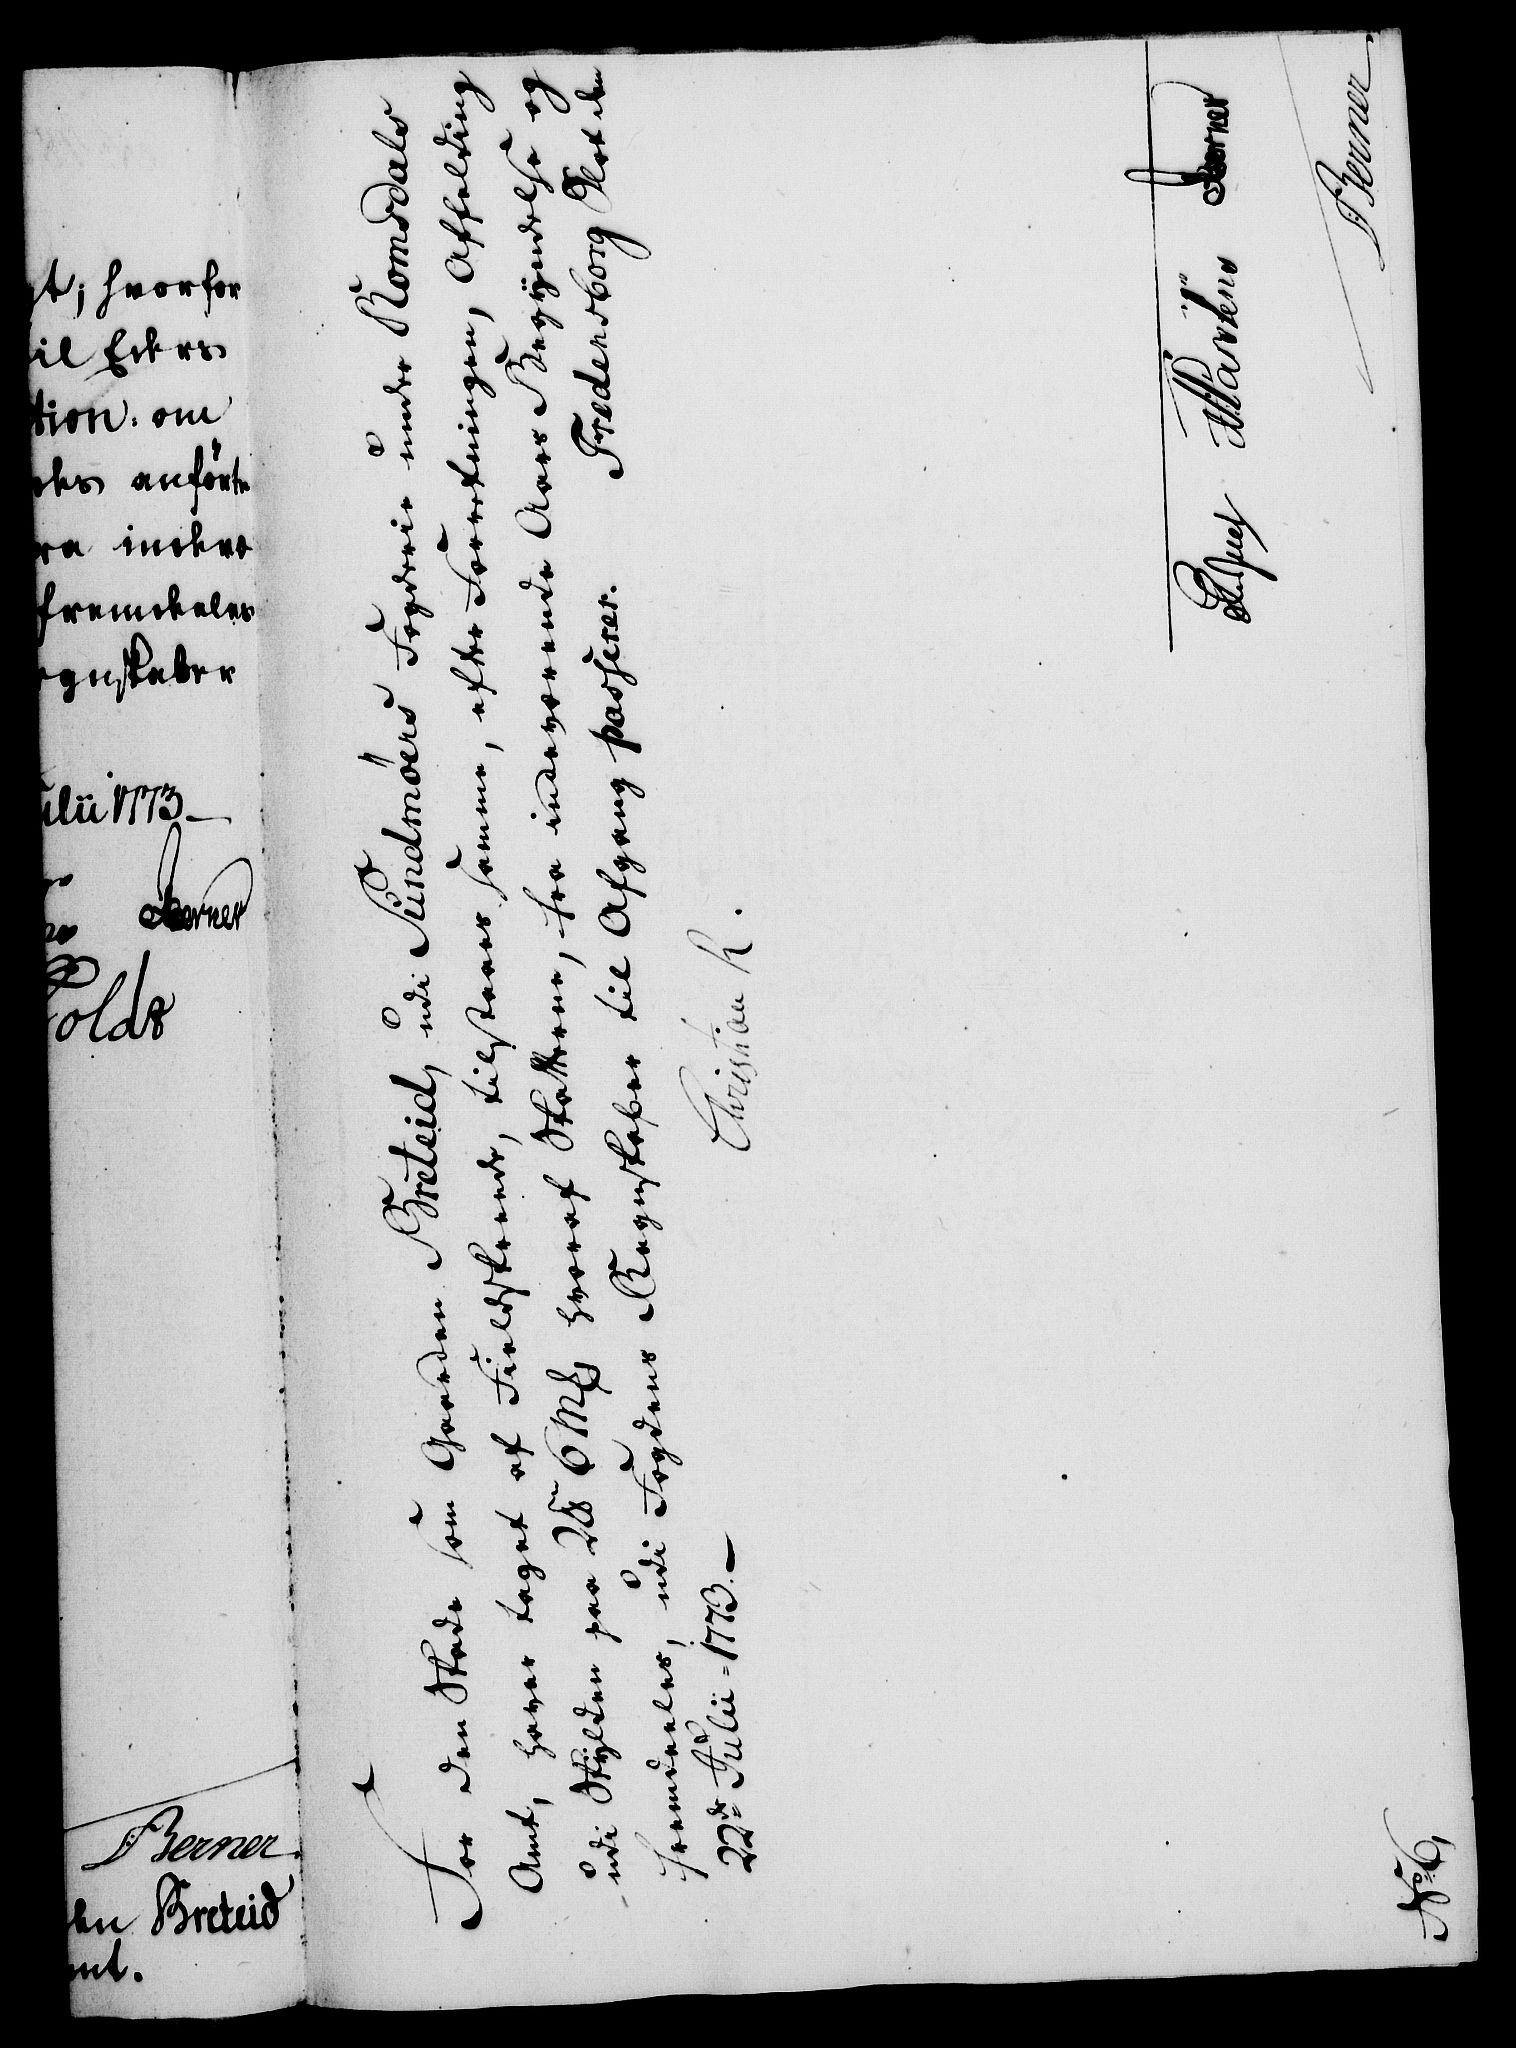 t; hvorfor
til Eders
tion om
anförte
fra indev
fremdeles
Regnskaber
Julii 1773
Berner
Berner
den Breteid
Amt.
For den Skade som Gaarden Breteid, udi Sundmöers Fogderie under Romsdals
Amt, haver taget af Fieldskreed, tilstaaes samme, efter Forretningen, Affelding
udi Skylden paa 2 6 Mk, hvoraf Skatterne, fra indeværende Aars Begyndelse og
fremdeeles, udi Fogdens Regnskaber til Afgang passerer. Fredensborg Slot den
22de Julii 1773.
Christian R.
Berner
Berner
No 6,